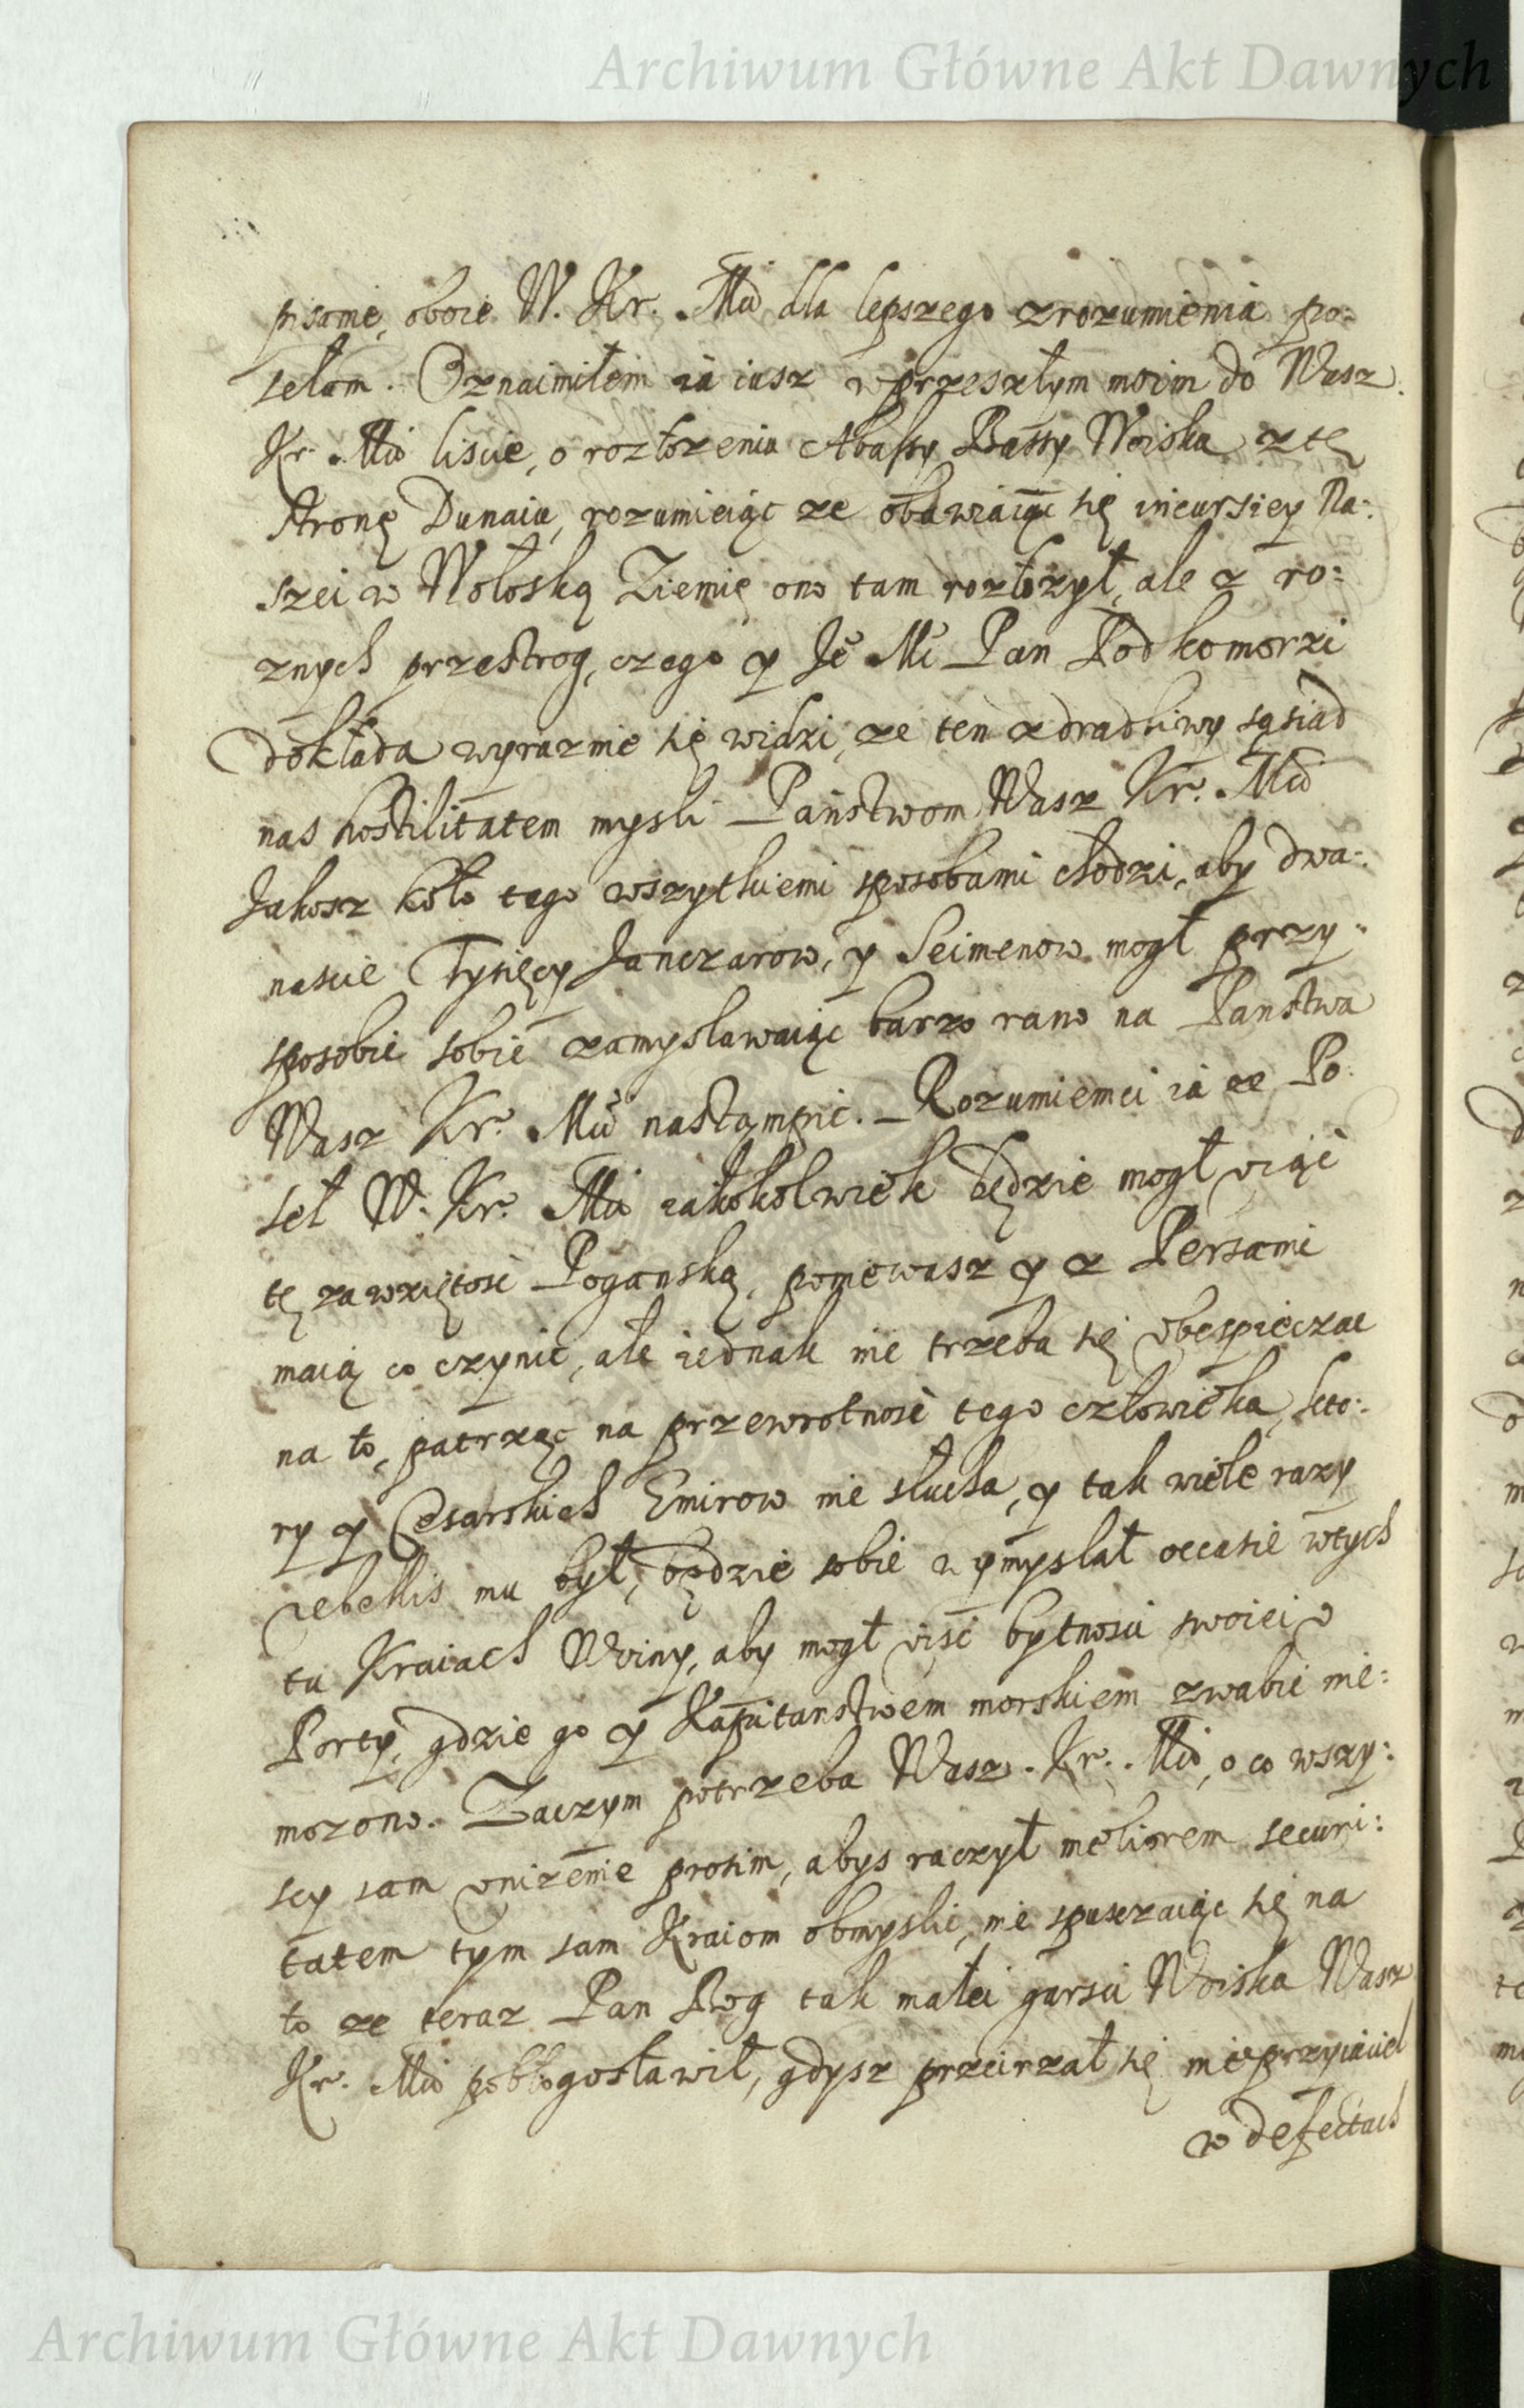 Archiwum Główne Akt Dawnych
pisanie, oboie W. Kr. Mci dla lepszego zrozumienia po:
sełam. Oznaimiłem ia iusz w przeszłym moim do Wasz
Kr. Mci liscie, o rozłożeniu Abassy Bassy Woiska z tę
stronę Dunaiu, rozumieiąc ze obawiaiąc się incursiey Na:
szei w Wołoską Ziemię ono tam rozłozył, ale z ro:
znych przestrog, czego y Je Mc Pan Podkomorzi
dokłada wyraznie się widzi, ze ten zdradliwy sąsiad
nas hostilitatem mysli Państwom Wasz Kr. Mci
Jakosz koło tego wszytkiemi sposobami chodzi, aby dwa:
nascie Tysięcy Janczarow, y Seimenow mogł przy:
sposobic sobie zamyslawaiąc barzo rano na Panstwa
Wasz Kr. Mci nastąmpic. Rozumiemci ia ze Po:
seł W. Kr. Mci iakokolwiek będzie mogł uiąc
tę zawziętosc Poganską, poniewasz y z Persami
maią co czynic, ale iednak nie trzeba się ubespieczac
na to, patrząc na przewrotnosc tego człowieka, kto:
ry y Cesarskich Emirow nie słucha, y tak wiele razy
rebellis mu był, będzie sobie zmyslał occasie w tych
tu Kraiach Woiny, aby mogł uisc bytnosci swoiei u
Porty, gdzie go y Kapitanstwem morskiem zwabic nie:
mozono. Zaczym potrzeba Wasz. Kr. Mci, o co wszy:
scy sam unizenie prosim, abys raczył meliorem securi:
tatem tym sam Kraiom obmyslic, nie spuszczaiąc się na
to ze teraz Pan Bog tak małei garsci Woiska Wasz
Kr. Mci pobłogosławił, gdysz przeirzał się nieprzyiaciel
w defectach
Archiwum Główne Akt Dawnych